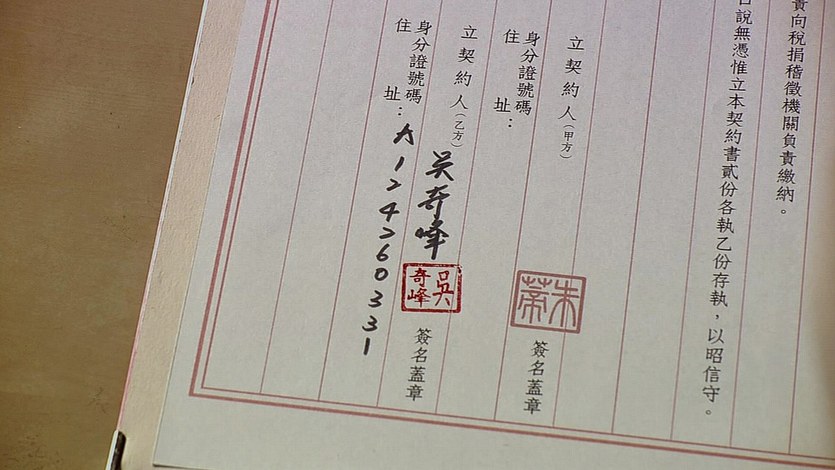 責向稅捐稽徵機關負責繳納。
說無憑惟立本契約書貳份各執乙份存執，以昭信守。
立契約人（甲方）
朱蒂
簽名蓋章
身分證號碼
住址：
立契約人（乙方）吳奇峰
吳奇峰
簽名蓋章
身分證號碼
住址：A124260331